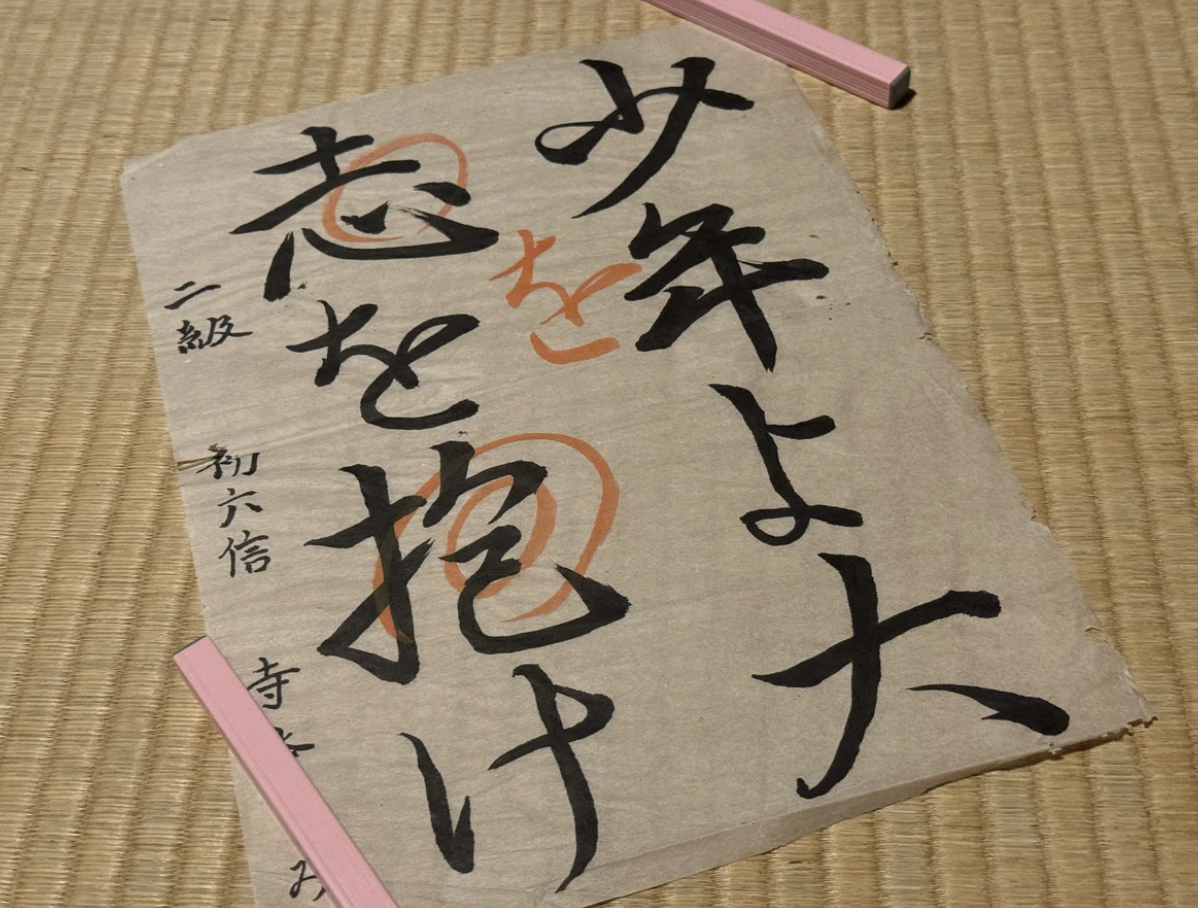 少年よ大
を
志を抱け
二級 初六信 寺
み